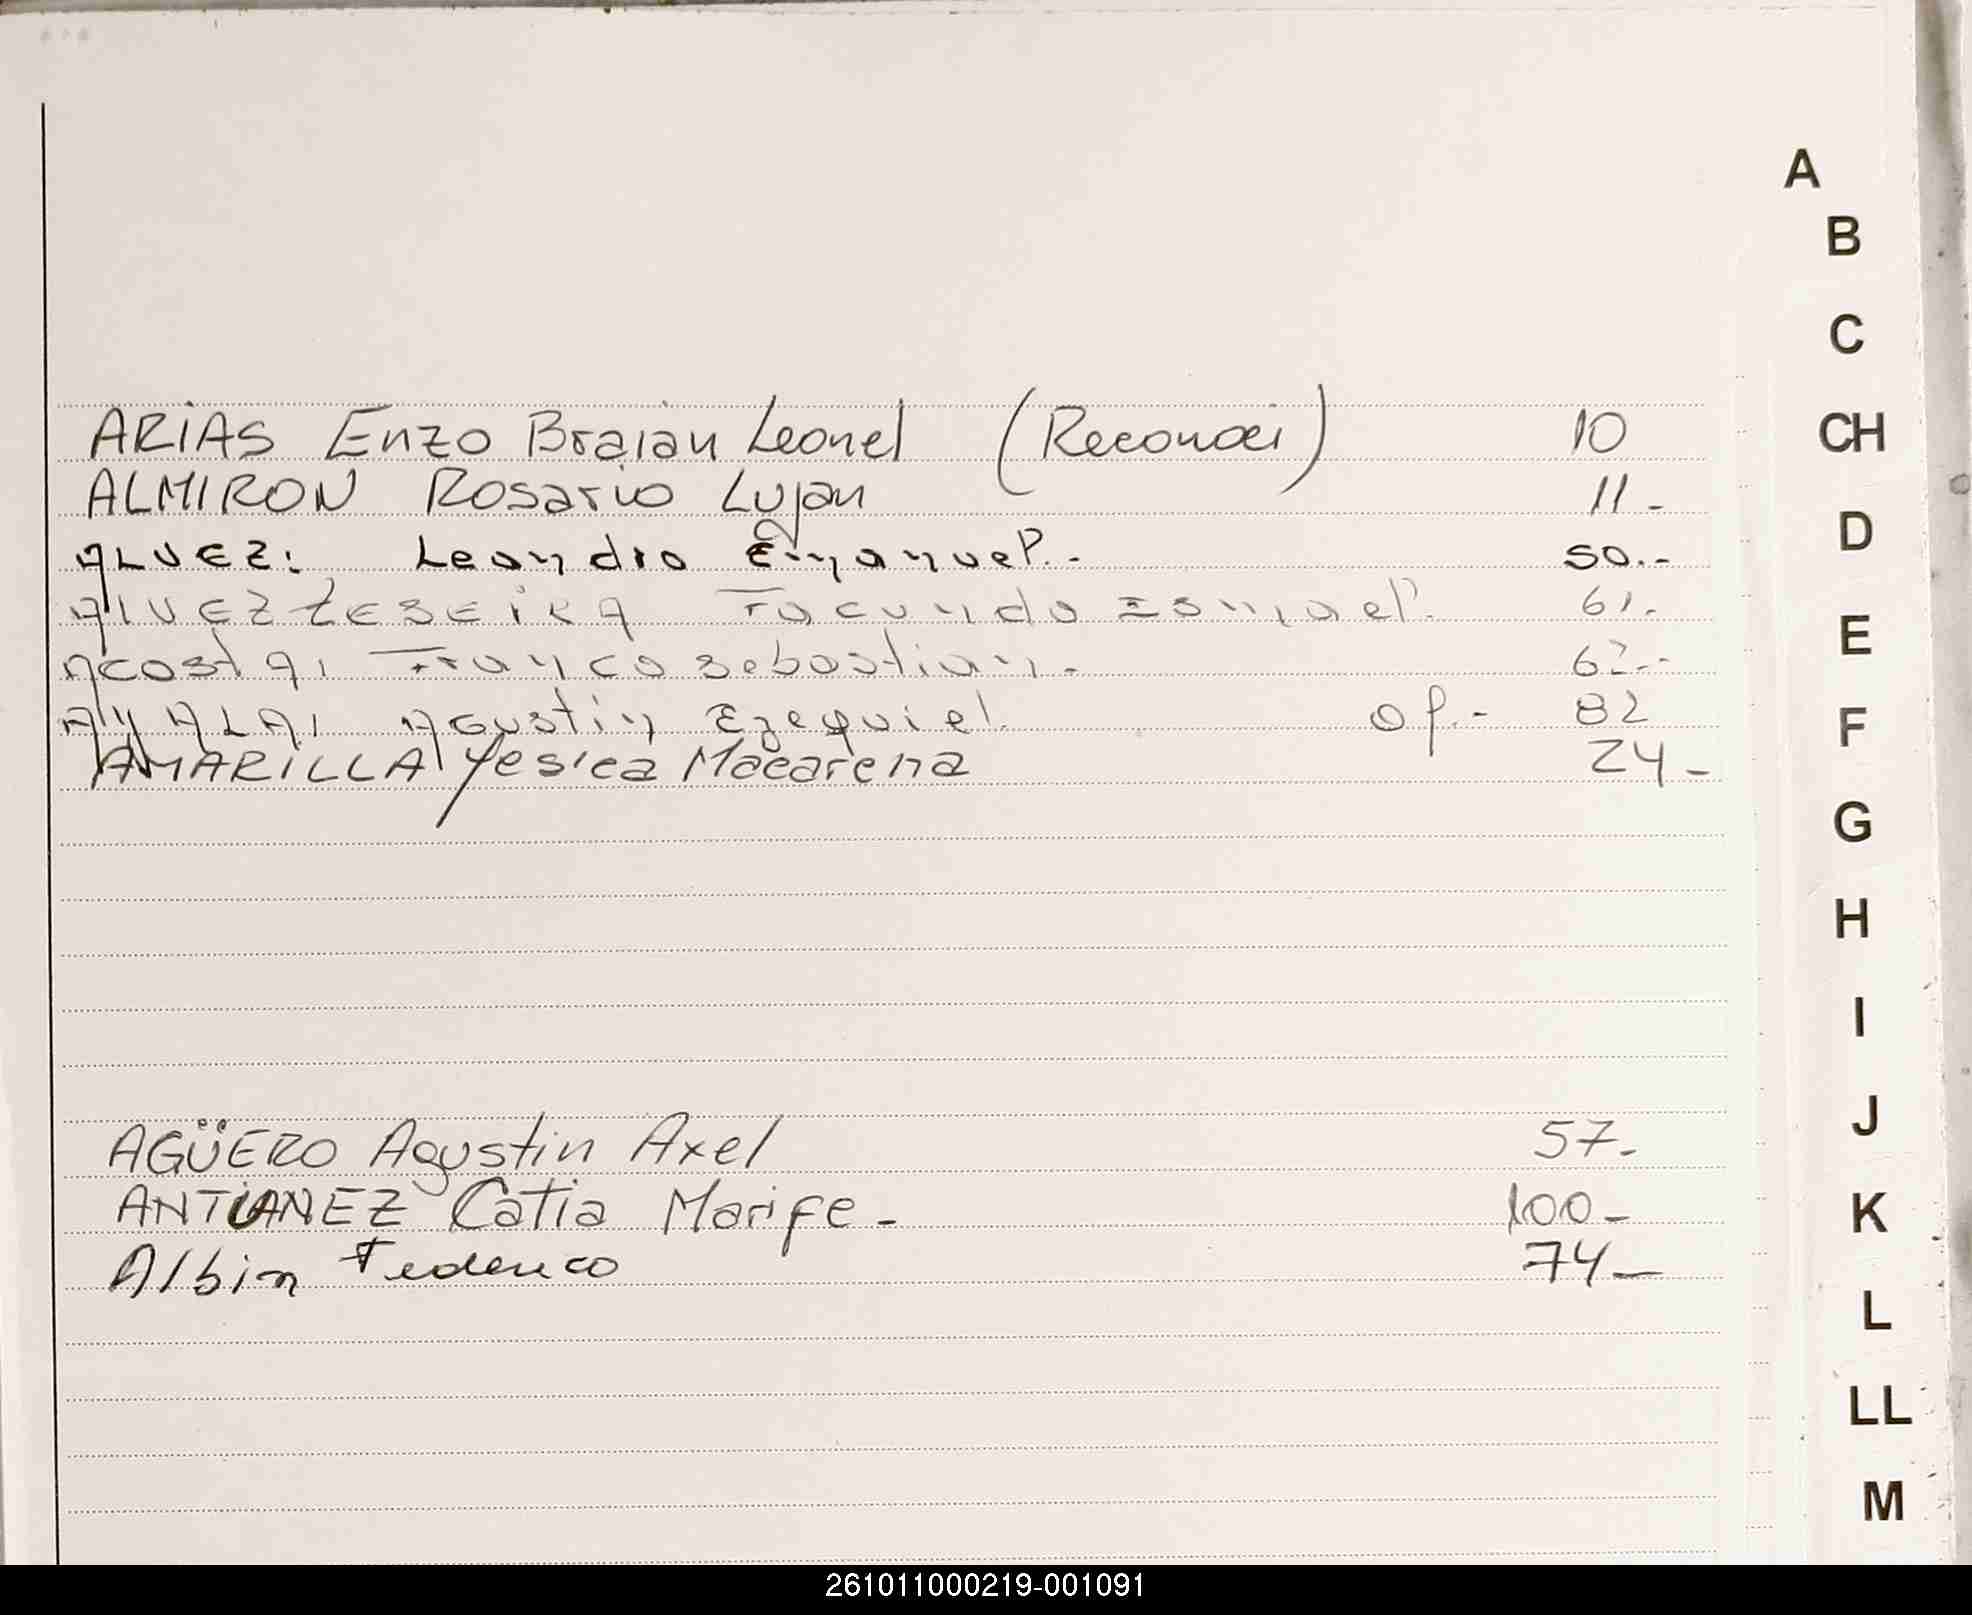 ARiAS Enzo Braian Leonel (Reconoci) 10
ALMIRON Rosario Lujan 11-
ALUEZ: Leandro Emanuel.- 50.-
Facundo Ismael. 61.-
Acosta, Franco sebastian.- 62.-
AYALA, Agustin Ezequiel. of.- 82
AMARILLA Yesica Macarena 24-
AGÜERO Agustin Axel 57-
ANTUANEZ Catia Marife- 100-
Albin Federico 74-
A
B
C
CH
D
E
F
G
H
I
J
K
L
LL
M
261011000219-001091